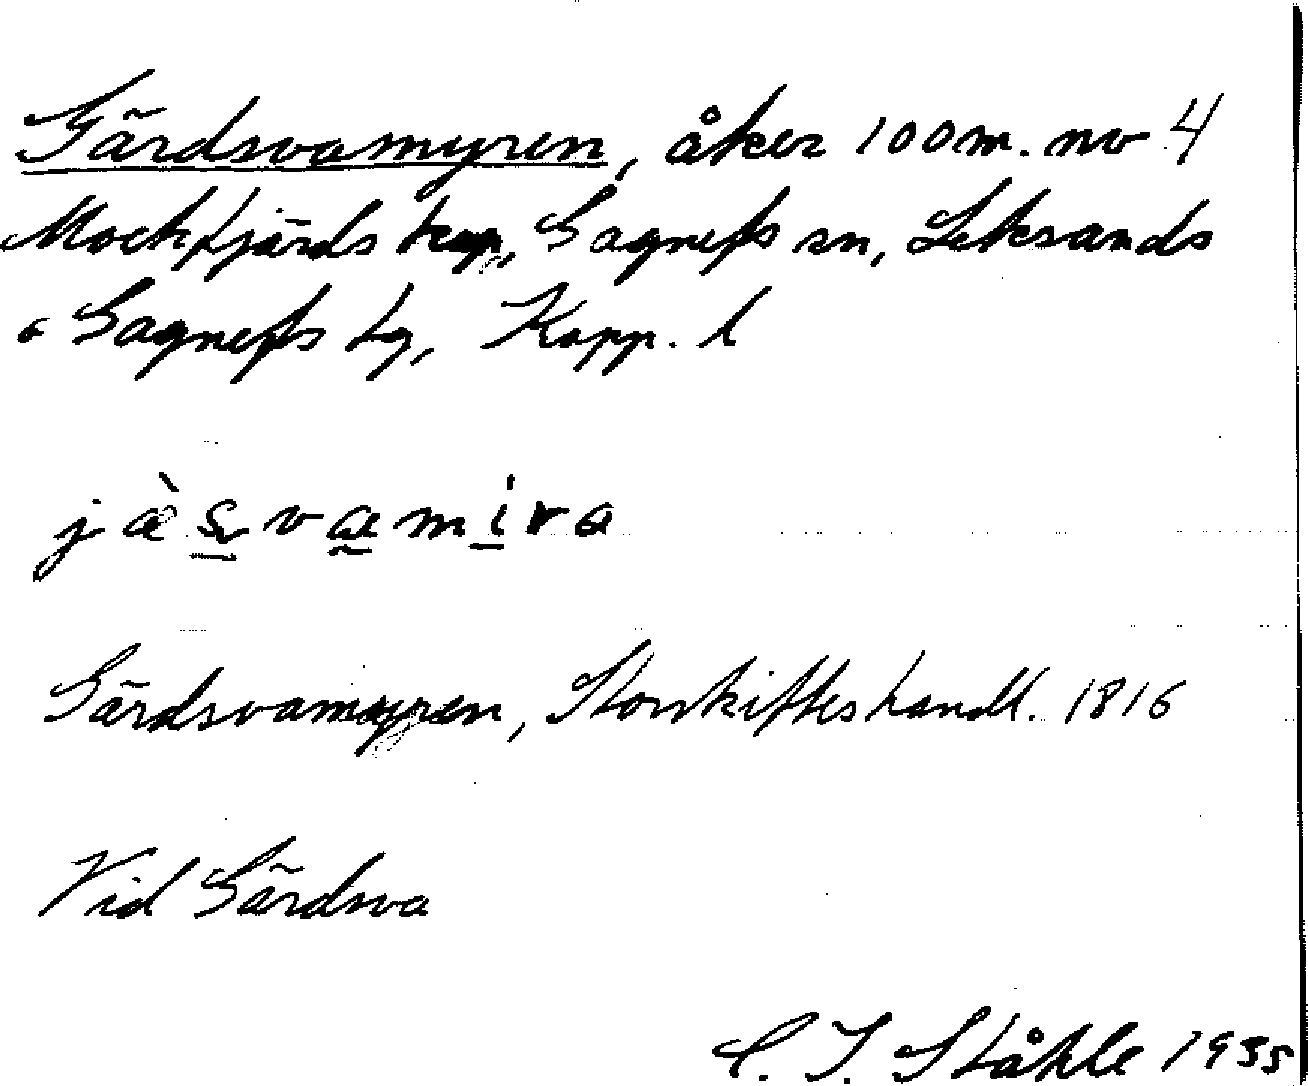 Gärdsvamyren, åker 100 m. nv 4
Mockfjärds kap, Gagnefs sn, Leksands
o Gagnefs tg, Kopp. l
jæ̀svamira
Gärdsvamyren, Storskifteshandl. 1816
Vid Gärdsva
C. I. Ståhle 1935